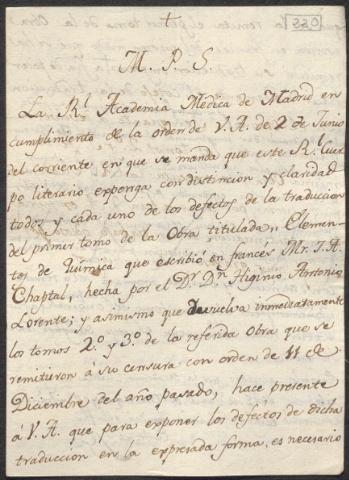 +
053
M. P. S.
La Rl. Academia Medica de Madrid en
cumplimiento de la orden de V. A. de 2 de Junio
del corriente en que se manda que este Rl. Cuer
po literario exponga con distincion y claridad
todos y cada uno de los defectos de la traduccion
del primer tomo de la Obra titulada,, Elemen-
tos de Quimica que escribió en francés Mr. J. A.
Chaptal, hecha por el Dr. Dn. Higinio Antonio
Lorente; y asimismo que devuelva inmediatamente
los tomos 2.º y 3.º de la referida Obra que se
remitieron a su censura con orden de 11 de
Diciembre del año pasado, hace presente
á V. A. que para exponer los defectos de dicha
traduccion en la expresada forma, es necesario